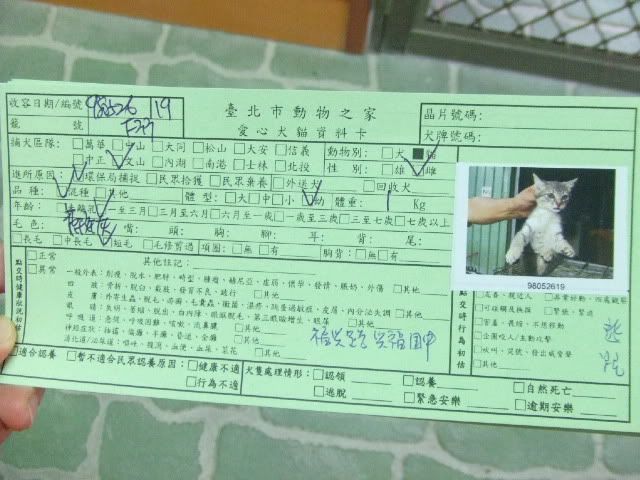 收容日期/編號 980526 19 臺北市動物之家 晶片號碼:
籠號 F27 愛心犬貓資料卡 犬牌號碼:
捕犬區隊: □萬華 □中山 □大同 □松山 □大安 □信義 動物別: □犬 ■貓
□中正 □文山 □內湖 □南港 □士林 □北投 性別: □雄 □雌
進所原因: □環保局捕捉 □民眾拾獲 □民眾棄養 □外送犬 □回收犬
品種: □混種 □其他 體型: □大 □中 □小 □幼 體重: Kg
年齡: □離乳 □一至三月 □三月至六月 □六月至一歲 □一歲至三歲 □三至七歲 □七歲以上
毛色: 嘴: 頭: 胸: 腳: 耳: 背: 尾:
□長毛 □中長毛 □短毛 □毛修剪過 項圈: □無 □有 胸背: □無 □有
98052619
點交時健康狀況初估 □正常 □異常 其他註記:
一般外表: 削瘦、脫水、肥胖、畸型、腫瘤、赫尼亞、虛弱、懷孕、發情、脹奶、外傷 □其他
四肢: 骨折、脫臼、截肢、發育不良、跛行 □其他
皮膚: 外寄生蟲、脫毛、疥癬、毛囊蟲、黴菌、濕疹、跳蚤過敏症、皮屑、內分泌失調 □其他
眼睛: 失明、萎縮、脫出、白內障、眼瞼脫毛、第三眼瞼增生、眼屎 □其他
呼吸道: 倦怠、呼吸困難、咳嗽、流鼻膿 □其他
神經症狀: 抽搐、偏癱、半癱、昏迷、全癱 □其他
消化道/泌尿道: 嘔吐、腹瀉、血便、血尿、 □其他
福 國中
點交時行為初估 □友善、親近人
□可接觸及撫摸 □緊張、緊迫
□害羞、畏縮、不想移動
□企圖咬人/主動攻擊
□吠叫、哭號、發出威脅聲
□其他
□適合認養 □暫不適合民眾認養原因: □健康不適 □行為不適
犬隻處理情形: □認領 □認養 □自然死亡
□逃脫 □緊急安樂 □逾期安樂